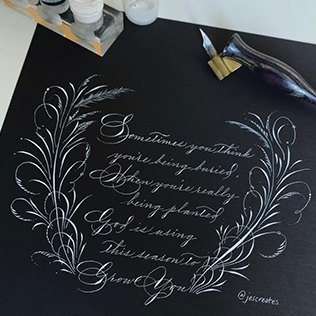 Sometimes you think
you're being buried.
When you're really
being planted.
God is using
this season to
Grow You
@jescreates